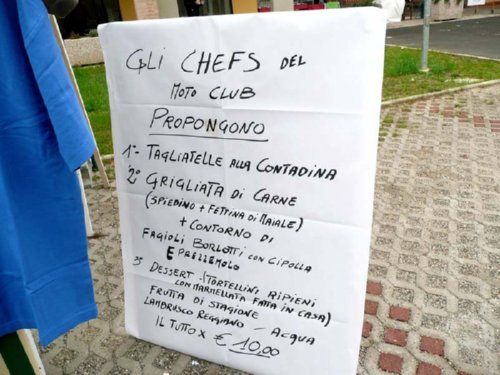 GLI CHEFS DEL
MOTO CLUB
PROPONGONO
1°- TAGLIATELLE ALLA CONTADINA
2° GRIGLIATA DI CARNE
(SPIEDINO + FETTINA DI MAIALE)
+ CONTORNO DI
FAGIOLI BORLOTTI CON CIPOLLA
E PREZZEMOLO
3° DESSERT: (TORTELLINI RIPIENI
CON MARMELLATA FATTA IN CASA)
FRUTTA DI STAGIONE
LAMBRUSCO REGGIANO - ACQUA
IL TUTTO X € 10,00